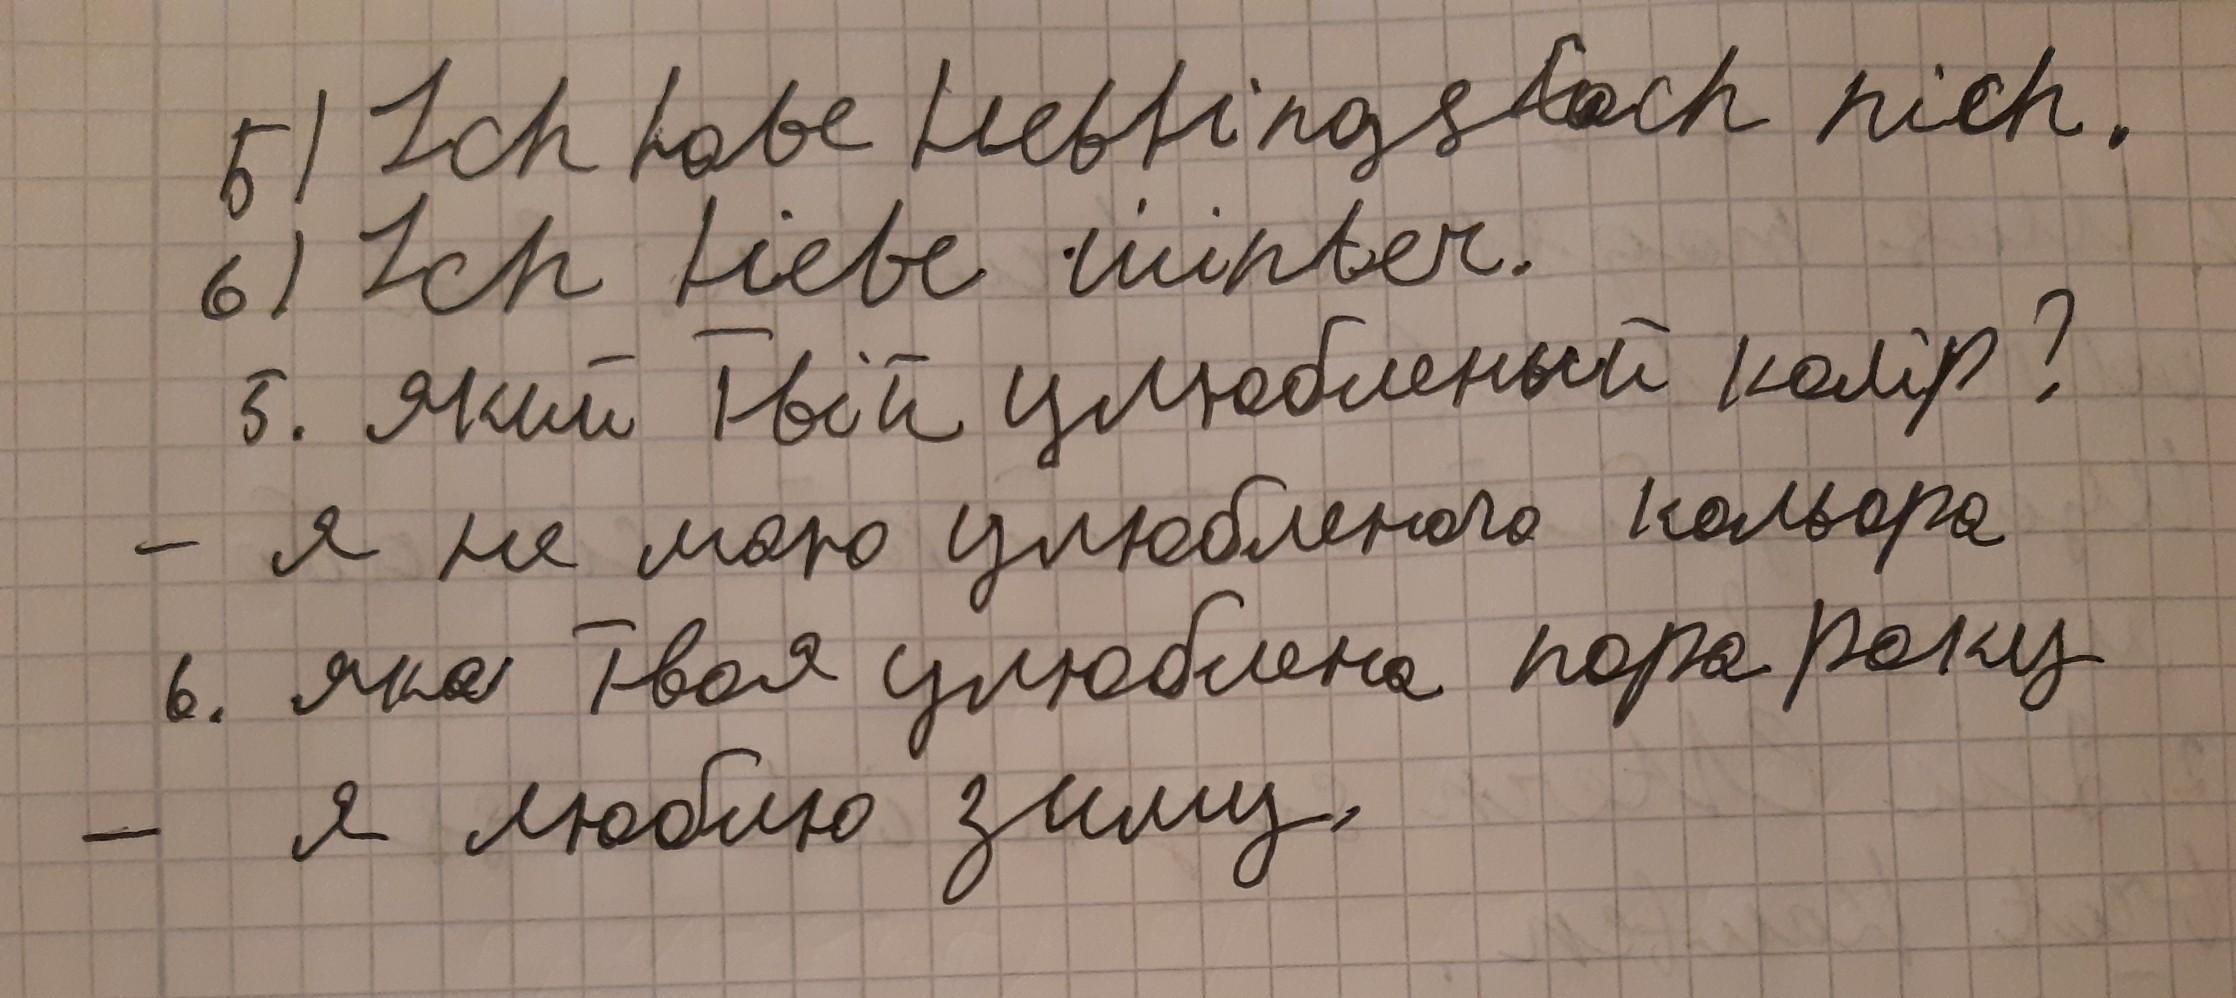 5) Ich habe Lieblingsfach nich.
6) Ich liebe winter.
5. Який твій улюбленый колір?
- я не маю улюбленого кольора
6. яка твоя улюблена пора року
- я люблю зиму,